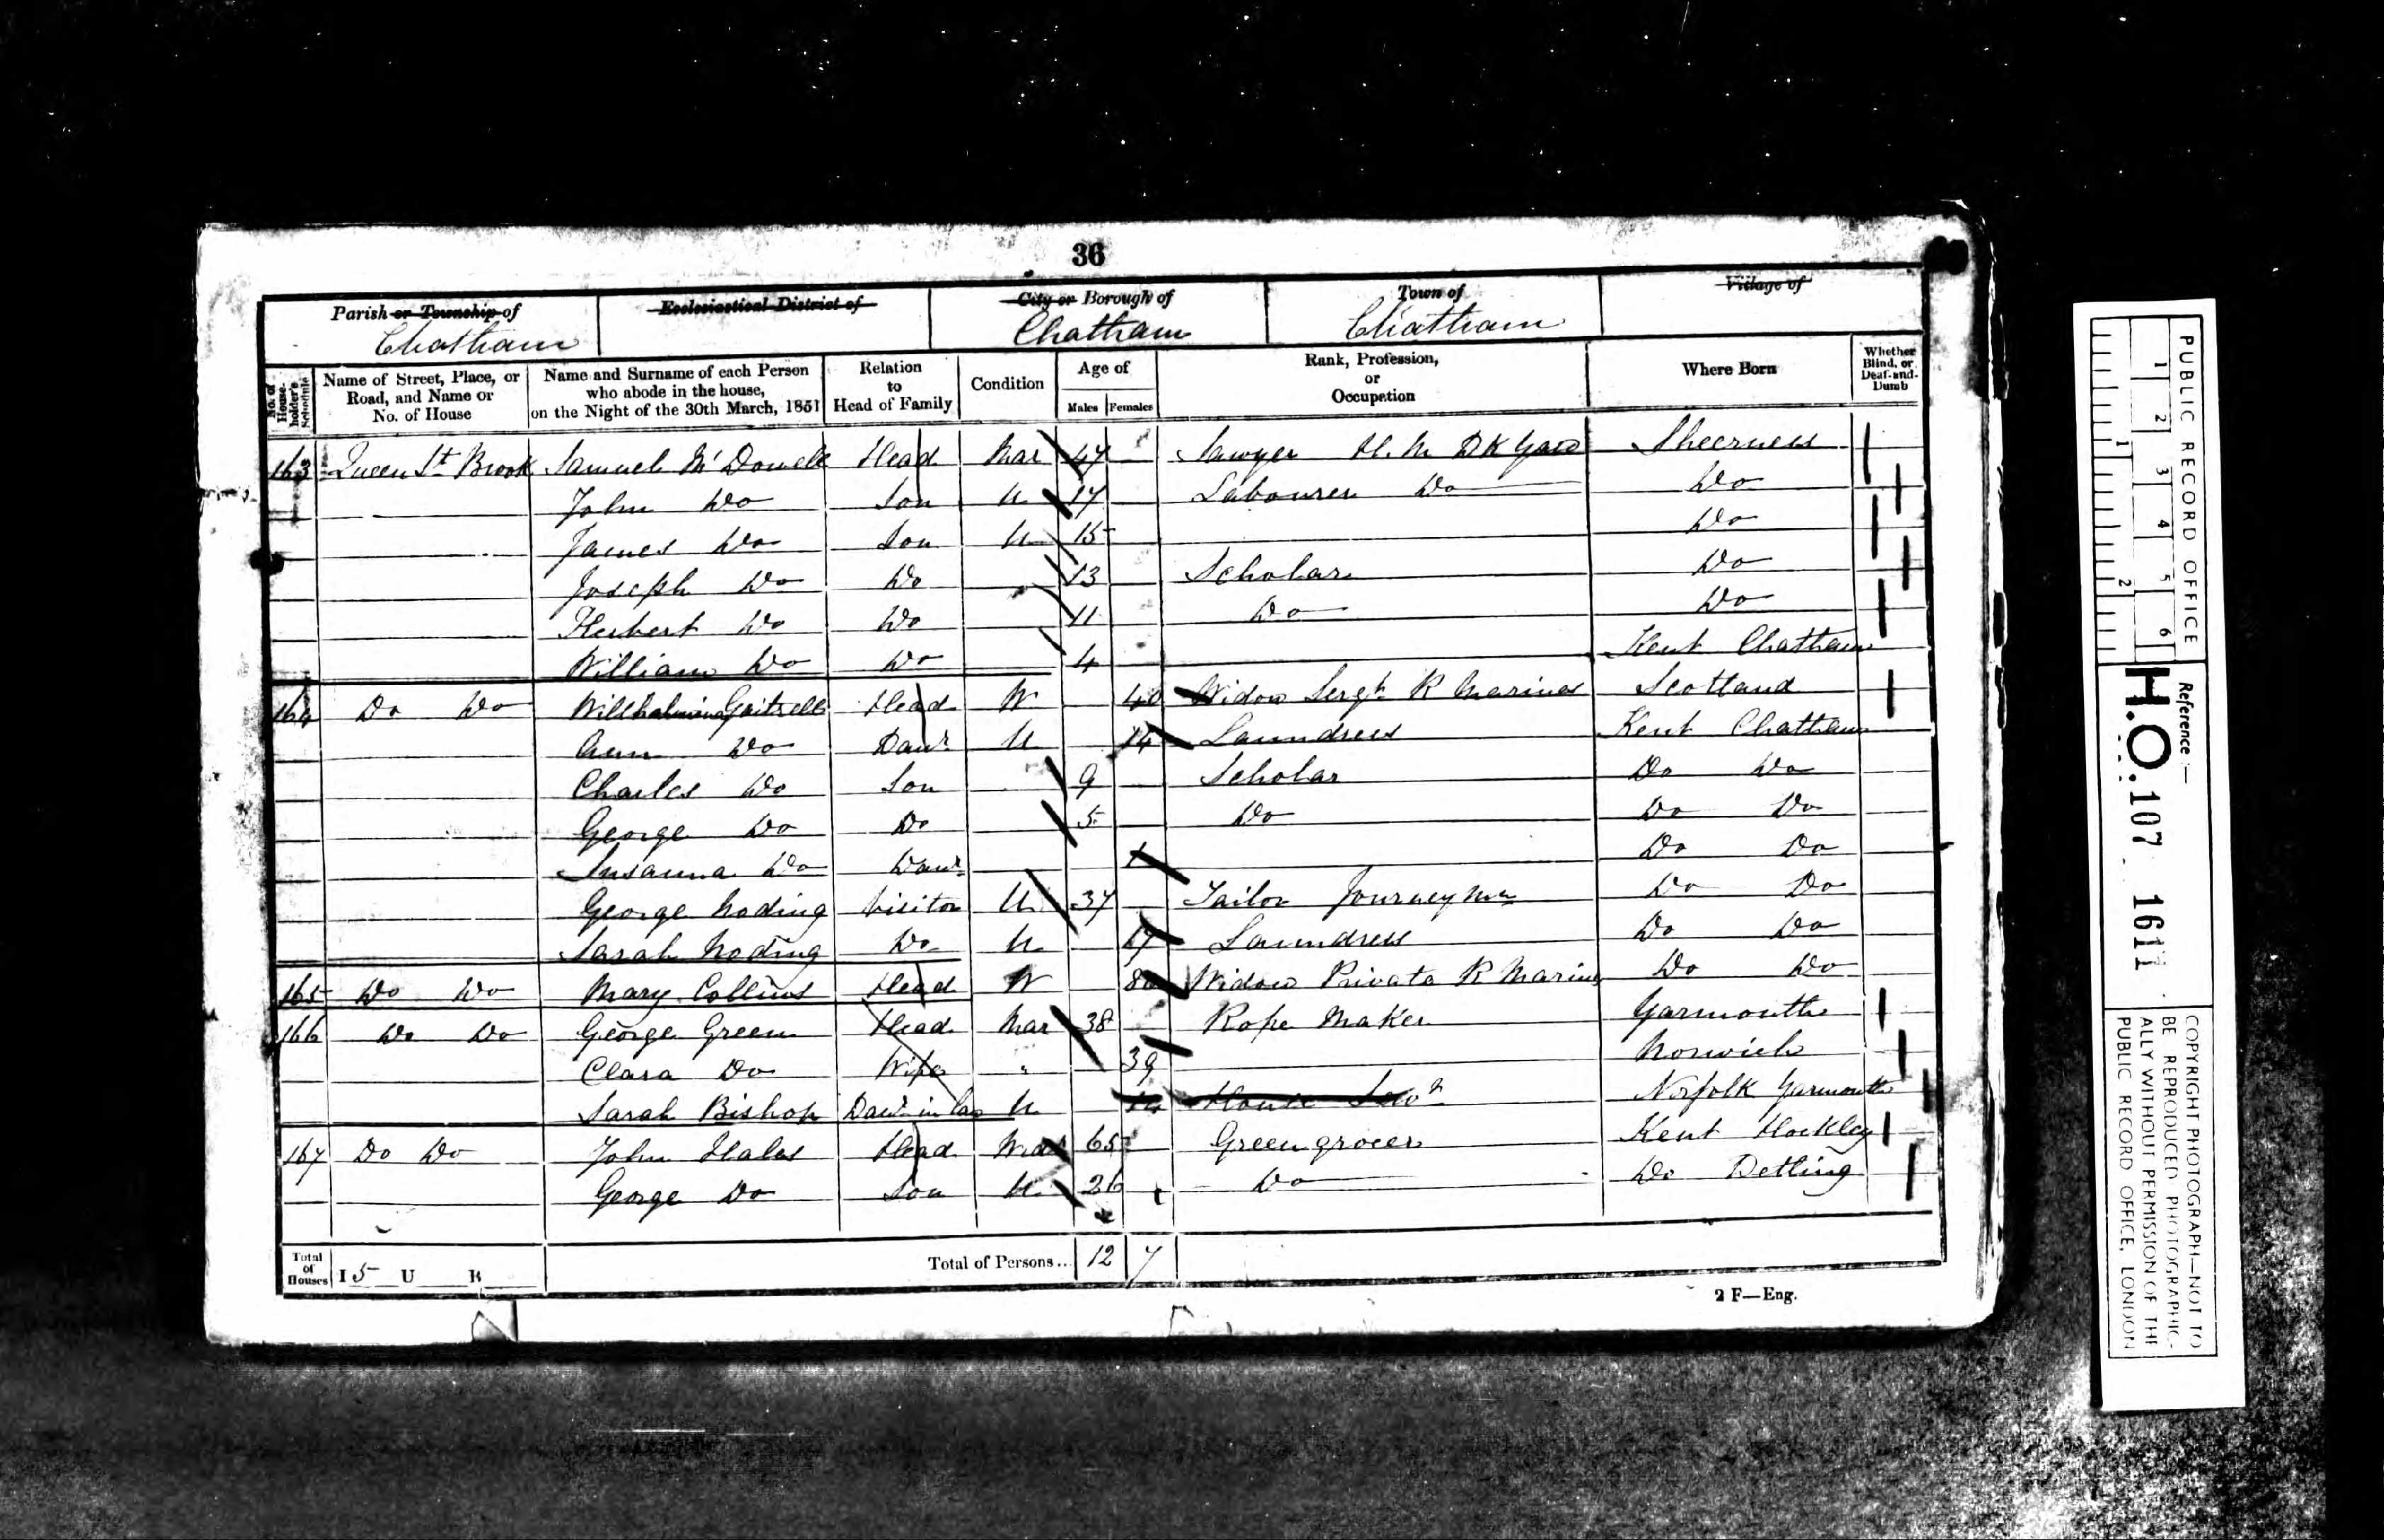 36
Parish or Township of
Ecclesiastical District of
City or Borough of
Town of
Village of
Chatham
Chatham
Chatham
No. of House-holder's Schedule
Name of Street, Place, or Road, and Name or No. of House
Name and Surname of each Person who abode in the house, on the Night of the 30th March, 1851
Relation to Head of Family
Condition
Age of
Males Females
Rank, Profession, or Occupation
Where Born
Whether Blind, or Deaf-and-Dumb
163 Queen St Brook Samuel McDowell Head Mar 47 Sawyer H. M. DK Yard Sheerness
John Do Son U 17 Labourer Do Do
James Do Son U 15 Do
Joseph Do Do 13 Scholar Do
Herbert Do Do 11 Do Do
William Do Do 4 Kent Chatham
164 Do Do Head W 40 Widow Sergt R Marines Scotland
Ann Do Daur U 14 Laundress Kent Chatham
Charles Do Son 9 Scholar Do Do
George Do Do 5 Do Do Do
Susanna Do Daur 1 Do Do
George Noding Visitor U 37 Tailor Do Do
Sarah Noding Do U Laundress Do Do
165 Do Do Mary Collins Head W 80 Widow Private R Marines Do Do
166 Do Do George Green Head Mar 38 Rope Maker Yarmouth
Clara Do Wife " 39 Norwich
Sarah Bishop Daur in law U House Norfolk Yarmouth
167 Do Do John Hales Head 65 Green grocer Kent
George Do Son U 26 Do Do Detling
Total of Houses I 5 U B
Total of Persons.. 12 7
2 F—Eng.
PUBLIC RECORD OFFICE
1 2 3 4 5 6
1 2
Reference:—
H.O. 107 1611
COPYRIGHT PHOTOGRAPH—NOT TO
BE REPRODUCED PHOTOGRAPHIC-
ALLY WITHOUT PERMISSION OF THE
PUBLIC RECORD OFFICE, LONDON